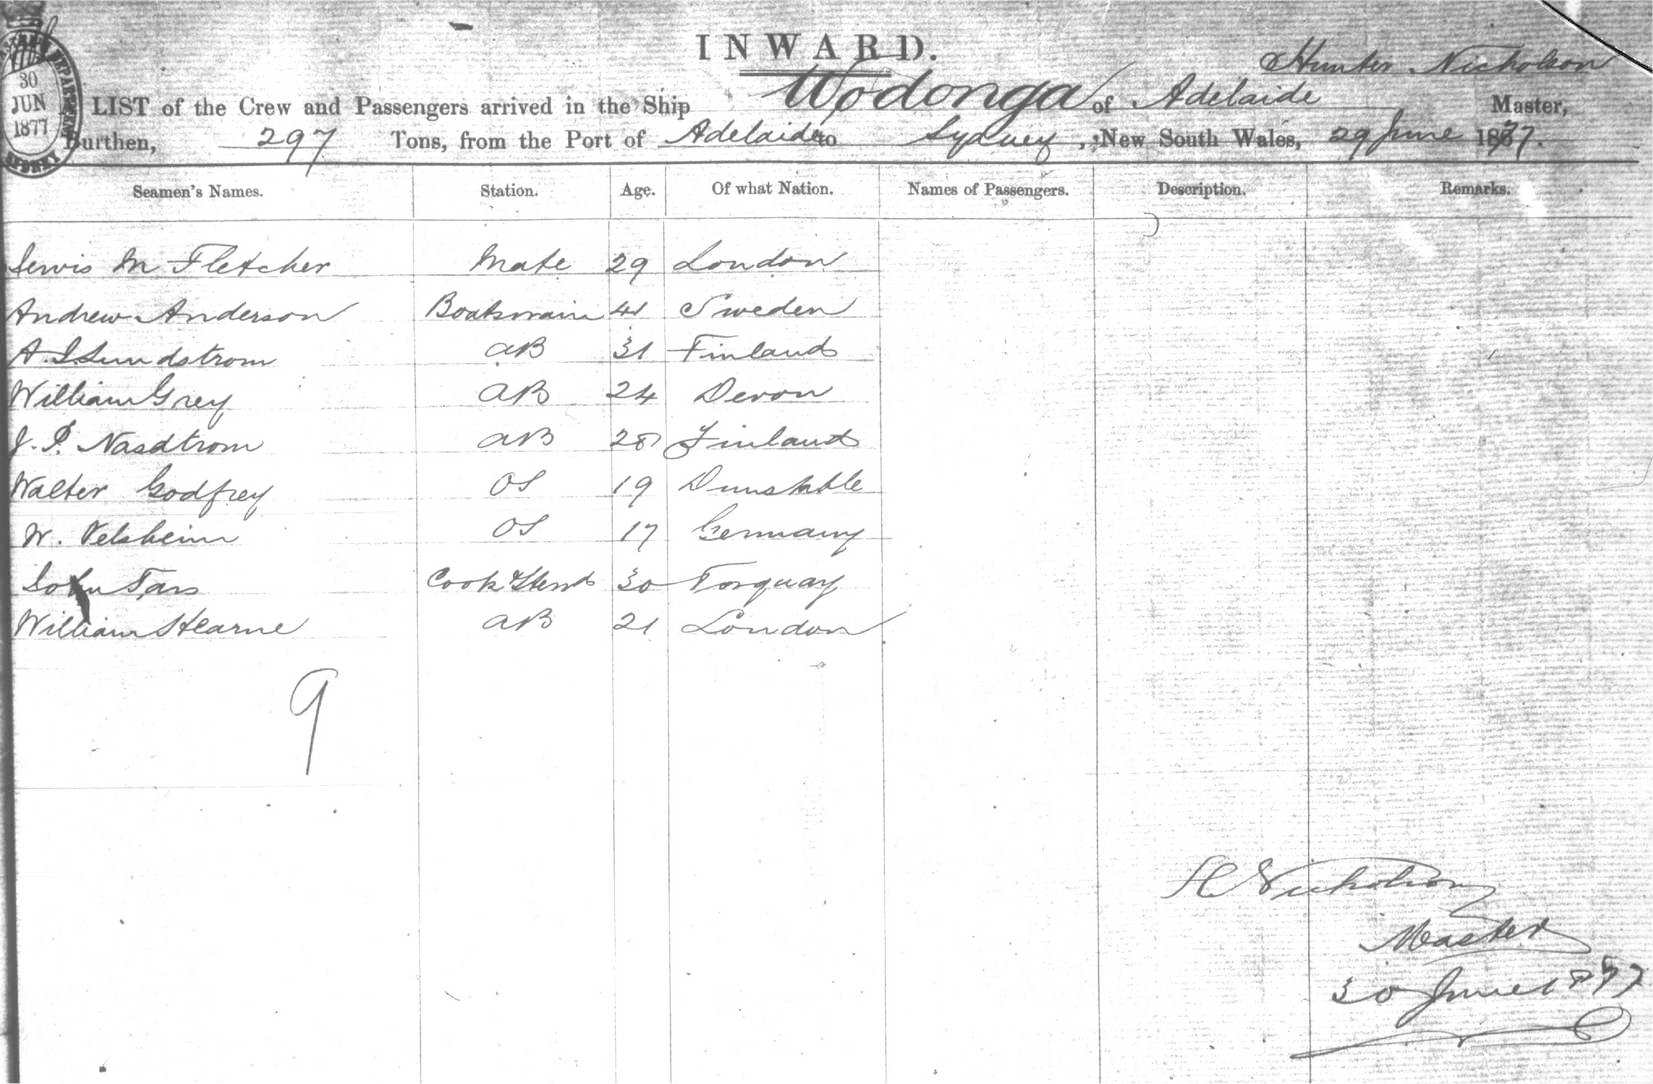 30
JUN
1877
INWARD.
Hunter Nicholson
LIST of the Crew and Passengers arrived in the Ship Wodonga of Adelaide Master,
Burthen, 297 Tons, from the Port of Adelaide to Sydney, New South Wales, 29 June 1877.
Seamen's Names. Station. Age. Of what Nation. Names of Passengers. Description. Remarks.
Lewis M Fletcher Mate 29 London
Andrew Anderson Boatswain 41 Sweden
A. Lundstrom AB 31 Finland
William Grey AB 24 Devon
J. P. Nasdtrom AB 28 Finland
Walter Godfrey OS 19 Dunstable
W. Velsheim OS 17 Germany
John Tars Cook & Stewd 30 Torquay
William Hearne AB 21 London
9
H Nicholson
Master
30 June 1877